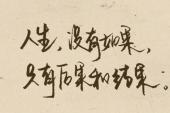 人生，没有如果，
只有后果和结果：